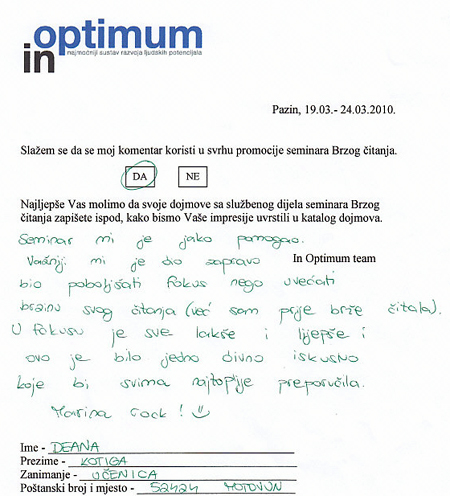 in optimum
najmoćniji sustav razvoja ljudskih potencijala
Pazin, 19.03.- 24.03.2010.
Slažem se da se moj komentar koristi u svrhu promocije seminara Brzog čitanja.
DA NE
Najljepše Vas molimo da svoje dojmove sa službenog dijela seminara Brzog
čitanja zapišete ispod, kako bismo Vaše impresije uvrstili u katalog dojmova.
Seminar mi je jako pomogao.
Važniji mi je dio zapravo In Optimum team
bio poboljšati fokus nego uvećati
brzinu svog čitanja (već sam prije brže čitala).
U fokusu je sve lakše i ljepše i
ovo je bilo jedno divno iskusno
koje bi svima najtoplije preporučila.
Marina rock!
Ime - DEANA
Prezime - KOTIGA
Zanimanje - UČENICA
Poštanski broj i mjesto - 52424 MOTOVUN